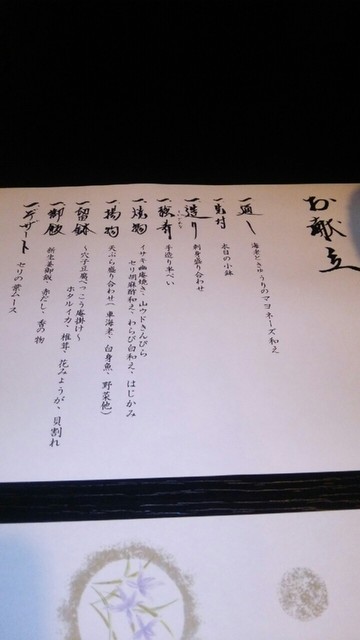 お献立
一、通し
海老ときゅうりのマヨネーズ和え
一、先付
本日の小鉢
一、造り
刺身盛り合わせ
手造り半ぺい
一、焼物
イサキ幽庵焼き・山ウドきんぴら
セリ胡麻酢和え、わらび白和え、はじかみ
一、揚物
天ぷら盛り合わせ(車海老、白身魚、野菜他)
一、留鉢
〜穴子豆腐べっこう庵掛け〜
ホタルイカ、椎茸、花みょうが、貝割れ
一、御飯
新生姜御飯、赤だし、香の物
一、デザート
セリの葉ムース